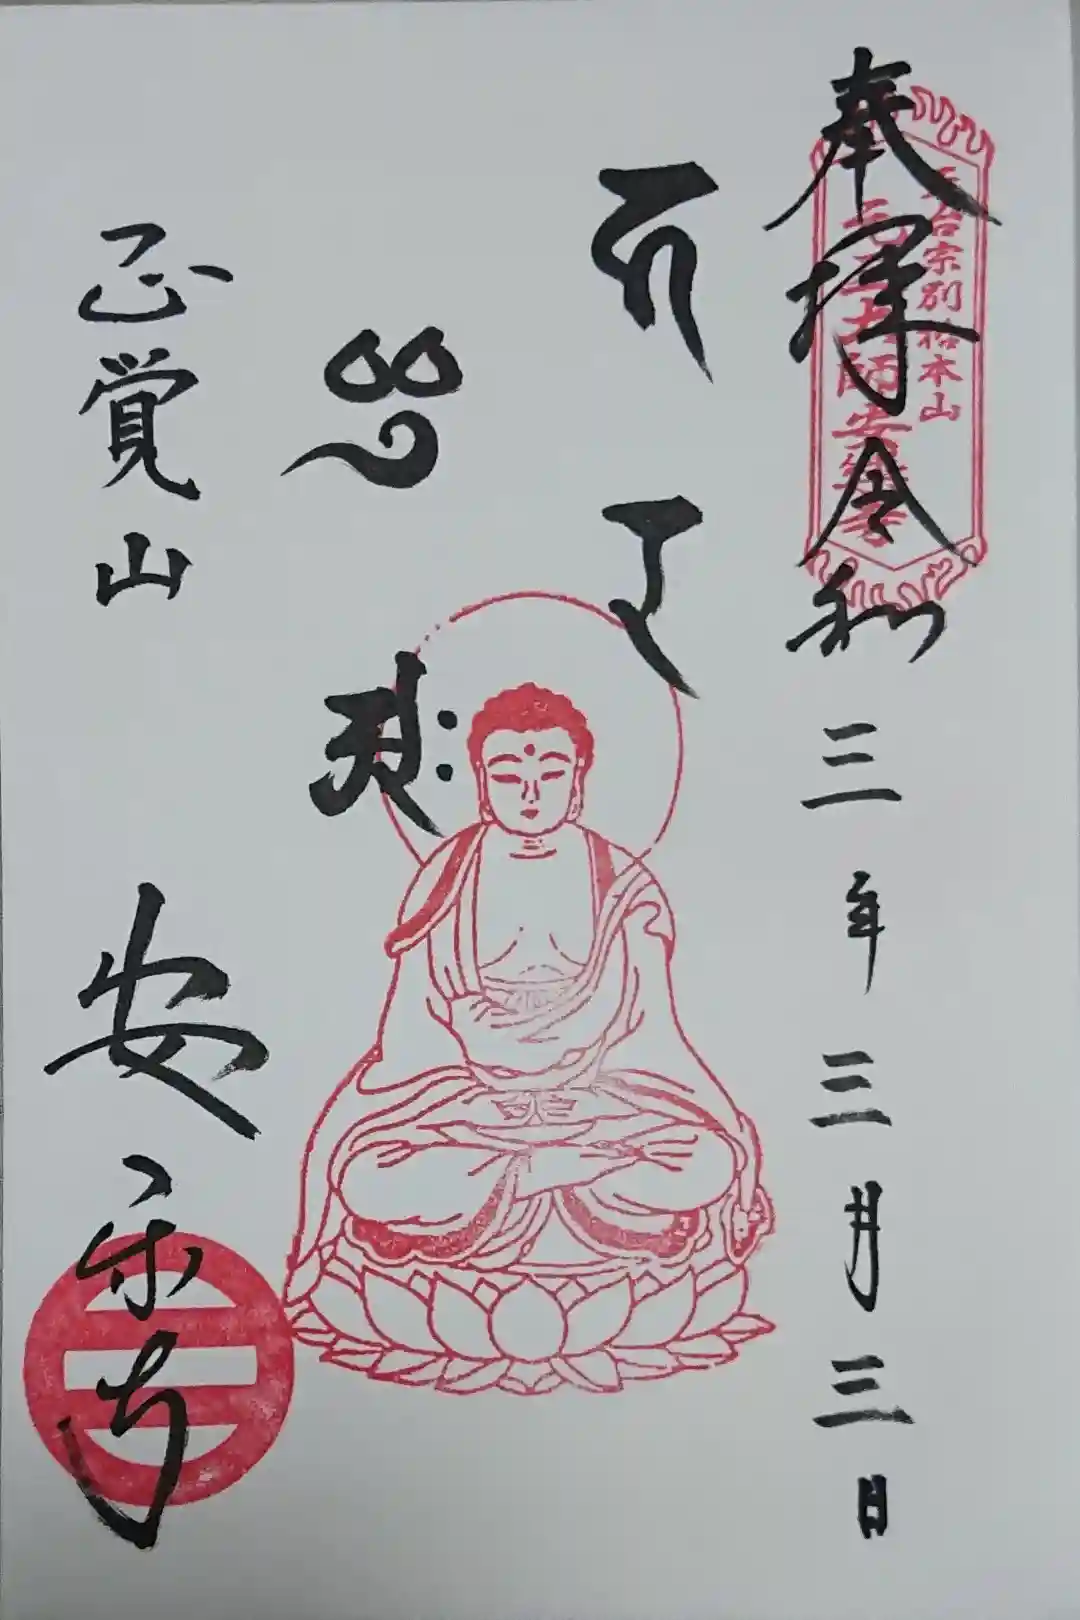 奉拝 令和三年三月三日
天台宗別格本山
元三大師安楽寺
正覚山 安楽寺